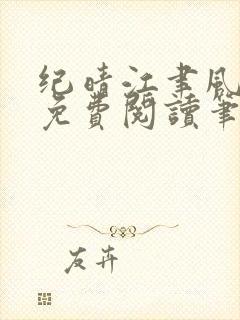 纪晴江聿风
免費閱讀筆
友卉